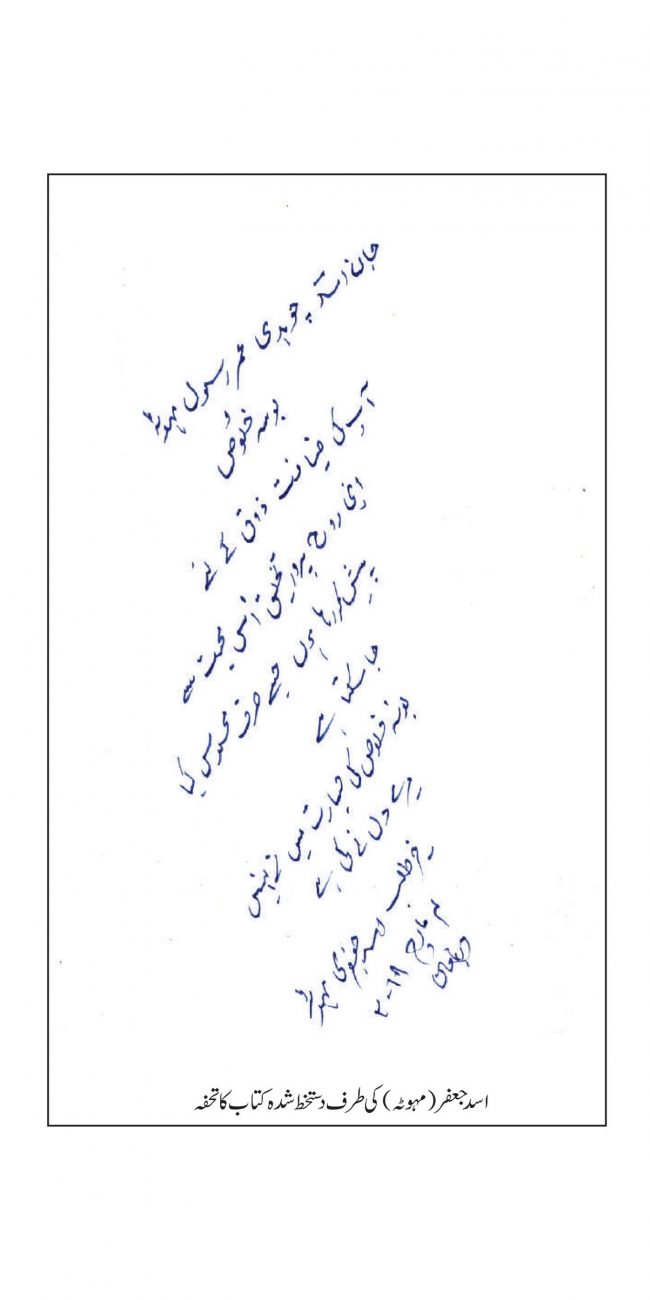 جانِ اسد چوہدری عمر رسول مہوٹہ
بوسہ خلوُص
آپ کی ضیافت ذوق کے لئے
اپنی روح پرور تخلیق اُس محبت سے
پیش کر رہا ہوں جسے صرف محسوس کیا
جا سکتا ہے
بوسہ خلوص کی جسارت میں نے نہیں
میرے دل نے کی ہے
خیر طلب اسد جعفری مہوٹہ
مارچ ۲۰۱۹
اسد جعفر (مہوٹہ) کی طرف دستخط شدہ کتاب کا تحفہ